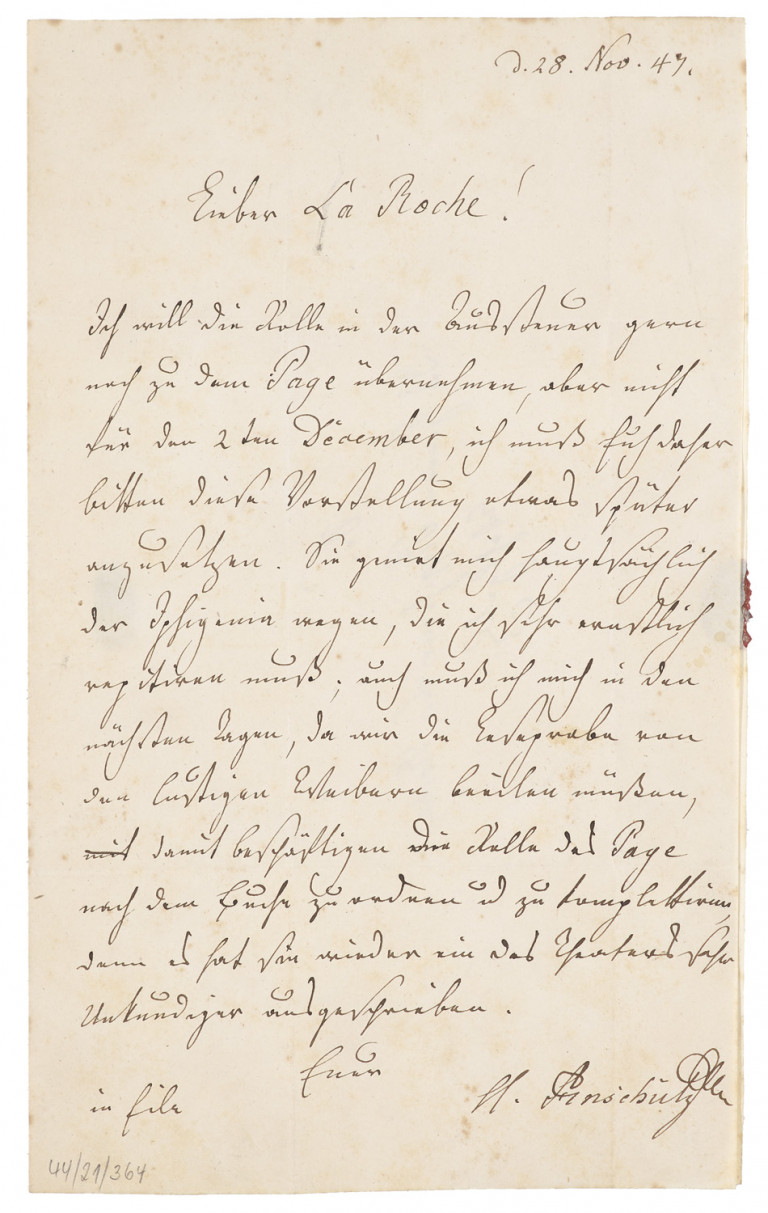 d. 28. Nov. 47.
Lieber La Roche!
Ich will die Rolle in der Aussteuer gern
noch zu dem Page übernehmen, aber nicht
für den 2ten December, ich muß Euch daher
bitten diese Vorstellung etwas später
anzusetzen. Sie genirt mich hauptsächlich
der Iphigenia wegen, die ich sehr ernstlich
repitiren muß; auch muß ich mich in den
nächsten Tagen, da wir die Leseprobe von
den lustigen Weibern beeilen müßen,
mit damit beschäftigen die Rolle des Page
nach dem Buche zu ordnen u zu komplettiren,
denn es hat sie wieder ein des Theaters sehr
Unkundiger ausgeschrieben.
Euer
in Eile
H. Anschütz
44/21/364